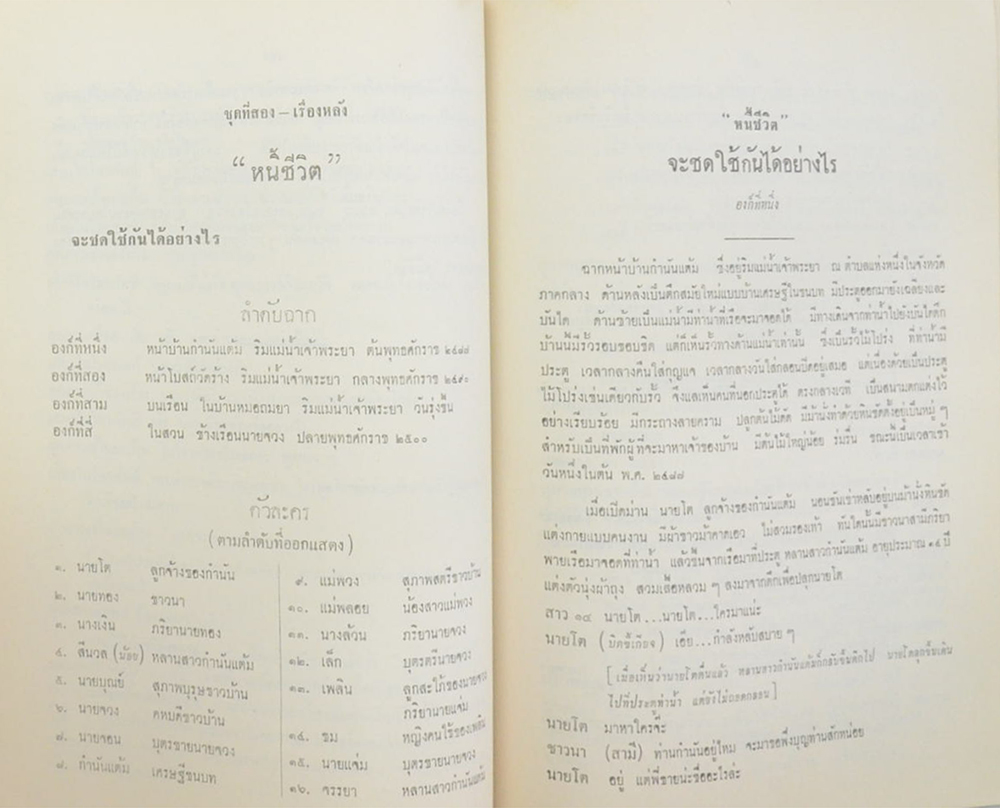 ชุดที่สอง – เรื่องหลัง
“หนี้ชีวิต”
จะชดใช้กันได้อย่างไร
ลำดับฉาก
องก์ที่หนึ่ง หน้าบ้านกำนันแต้ม ริมแม่น้ำเจ้าพระยา ต้นพุทธศักราช ๒๔๗๗
องก์ที่สอง หน้าโบสถ์วัดร้าง ริมแม่น้ำเจ้าพระยา กลางพุทธศักราช ๒๔๙๐
องก์ที่สาม บนเรือน ในบ้านหมอถมยา ริมแม่น้ำเจ้าพระยา วันรุ่งขึ้น
องก์ที่สี่ ในสวน ข้างเรือนนายจวง ปลายพุทธศักราช ๒๕๐๐
ตัวละคร
(ตามลำดับที่ออกแสดง)
๑. นายโต ลูกจ้างของกำนัน
๒. นายทอง ชาวนา
๓. นางเงิน ภริยานายทอง
๔. สีนวล (น้อย) หลานสาวกำนันแต้ม
๕. นายบุณย์ สุภาพบุรุษชาวบ้าน
๖. นายจวง คหบดีชาวบ้าน
๗. นายจอน บุตรชายนายจวง
๘. กำนันแต้ม เศรษฐีชนบท
๙. แม่พวง สุภาพสตรีชาวบ้าน
๑๐. แม่พลอย น้องสาวแม่พวง
๑๑. นางล้วน ภริยานายจวง
๑๒. เล็ก บุตรตรีนายจวง
๑๓. เพลิน ลูกสะใภ้ของนายจวง
ภริยานายแจ่ม
๑๔. ชม หญิงคนใช้ของเพลิน
๑๕. นายแจ่ม บุตรชายนายจวง
๑๖. จรรยา หลานสาวกำนันแต้ม
“หนี้ชีวิต”
จะชดใช้กันได้อย่างไร
องก์ที่หนึ่ง
ฉากหน้าบ้านกำนันแต้ม ซึ่งอยู่ริมแม่น้ำเจ้าพระยา ณ ตำบลแห่งหนึ่งในจังหวัด
ภาคกลาง ด้านหลังเป็นตึกสมัยใหม่แบบบ้านเศรษฐีในชนบท มีประตูออกมายังเฉลียงและ
บันได ด้านซ้ายเป็นแม่น้ำมีท่าน้ำที่เรือจะมาจอดได้ มีทางเดินจากท่าน้ำไปยังบันไดตึก
บ้านนี้มีรั้วรอบขอบชิด แต่ก็เห็นรั้วทางด้านแม่น้ำเท่านั้น ซึ่งเป็นรั้วไม้โปร่ง ที่ท่าน้ำมี
ประตู เวลากลางคืนใส่กุญแจ เวลากลางวันใส่กลอนปิดอยู่เสมอ แต่เนื่องด้วยเป็นประตู
ไม้โปร่งเช่นเดียวกับรั้ว จึงแลเห็นคนที่นอกประตูได้ ตรงกลางเวที เป็นสนามตกแต่งไว้
อย่างเรียบร้อย มีกระถางลายคราม ปลูกต้นไม้ดัด มีม้านั่งทำด้วยหินขัดตั้งอยู่เป็นหมู่ ๆ
สำหรับเป็นที่พักผู้ที่จะมาหาเจ้าของบ้าน มีต้นไม้ใหญ่น้อย ร่มรื่น ขณะนี้เป็นเวลาเช้า
วันหนึ่งในต้น พ.ศ. ๒๔๗๗
เมื่อเปิดม่าน นายโต ลูกจ้างของกำนันแต้ม นอนชันเข่าหลับอยู่บนม้านั่งหินขัด
แต่งกายแบบคนงาน มีผ้าขาวม้าคาดเอว ไม่สวมรองเท้า ทันใดนั้นมีชาวนาสามีภริยา
พายเรือมาจอดที่ท่าน้ำ แล้วขึ้นจากเรือมาที่ประตู หลานสาวกำนันแต้ม อายุประมาณ ๑๔ ปี
แต่งตัวนุ่งผ้าถุง สวมเสื้อหลวม ๆ ลงมาจากตึกเพื่อปลุกนายโต
สาว ๑๔ นายโต...นายโต...ใครมาแน่ะ
นายโต (บิดขี้เกียจ) เอ้ย...กำลังหลับสบาย ๆ
[เมื่อเห็นว่านายโตตื่นแล้ว หลานสาวกำนันแต้มก็กลับขึ้นตึกไป นายโตลุกขึ้นเดิน
ไปที่ประตูท่าน้ำ แต่ยังไม่ถอดกลอน]
นายโต มาหาใครจ๊ะ
ชาวนา (สามี) ท่านกำนันอยู่ไหม จะมาขอพึ่งบุญท่านสักหน่อย
นายโต อยู่ แต่พี่ชายน่ะชื่ออะไรล่ะ